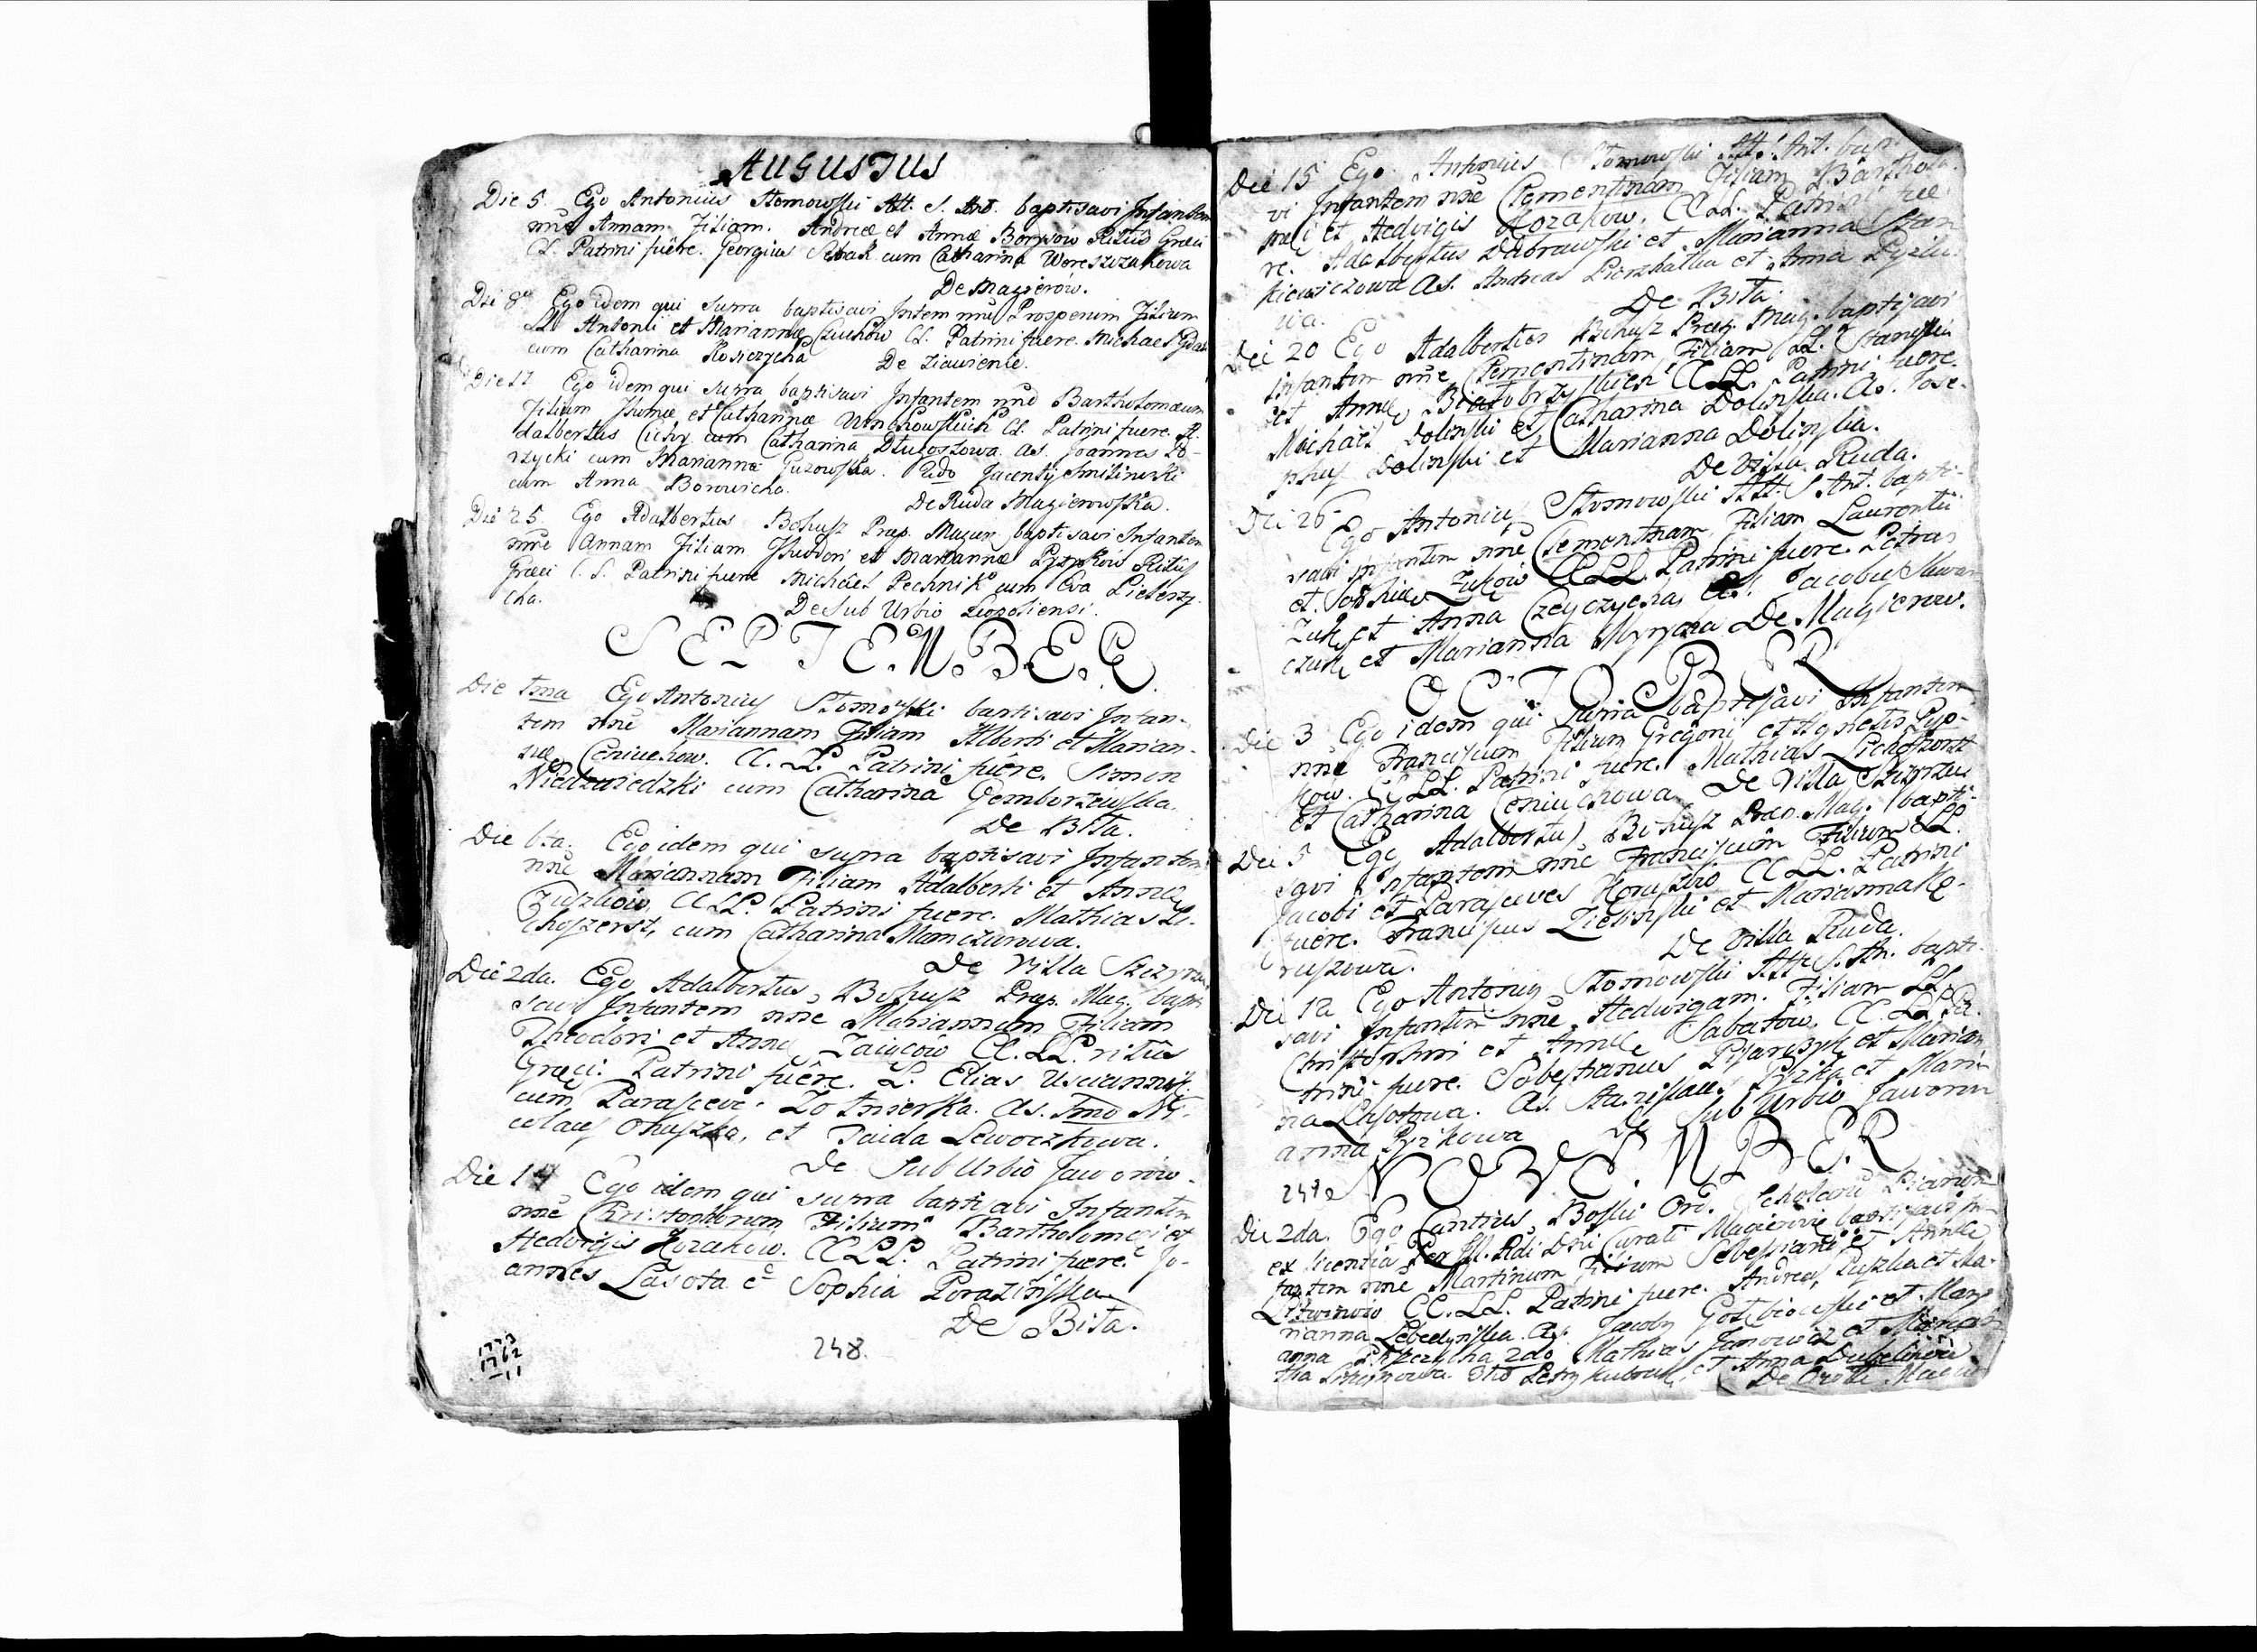 AUGUSTUS
Die 5. Ego Antonius Stomowski Alt. S. Ant. baptisavi Infantem
nñe Annam Filiam. Andreæ et Annæ Borysow Ritûs Græci
CL. Patrini fuêre. Georgius cum Catharina Woreszczakowa
De Magierow.
Die 8a Ego idem qui supra baptisavi Intem nñe Prosperum Filium
LL Antonii et Mariannæ Czuchow CL. Patrini fuere. Michael
cum Catharina Kosiczycha De
Die 17 Ego idem qui supra baptisavi Infantem nñe Bartholomæum
Filium Thomæ et Catharinæ CL. Patrini fuere. A-
dalbertus Cichy cum Catharina Dlugoszowa. As. Joannes Do-
rzycki cum Marianna Guzowska. 2do Jacenty
cum Anna Borowicha.
De Ruda Magierowska.
Die 25. Ego Adalbertus Bohusz Præp. Magier. baptisavi Infantem
nñe Annam Filiam Theodori et Mariannæ Ritus
Græci C. L. Patrini fuere Michael Pechnik cum Eva
cha.
De Sub Urbio Leopoliensi.
SEPTEMBER
Die 1ma Ego Antonius Stomowski baptisavi Infan-
tem nñe Mariannam Filiam Alberti et Marian-
næ Ceniuchow. CC. LL. Patrini fuêre. Simon
Niedzwiedzki cum Catharina Gemborzewska.
De Bila.
Die 6ta. Ego idem qui supra baptisavi Infantem
nñe Mariannam Filiam Adalberti et Annæ
CC LL. Patrini fuere. Mathias Li-
choszerst, cum Catharina Manczurowa.
De Villa
Die 2da. Ego Adalbertus Bohusz Præp. Mag. bapti
savi Infantem nñe Mariannam Filiam
Theodori et Annæ Zaiycow CC. LL. ritûs
Græci: Patrini fuêre. L. Elias
cum Parasceve Zolnierka. As. 1mo Ni-
colaus Ohuszka, et Taida Lewoczkowa.
De Sub Urbio Jaworow.
Die 14 Ego idem qui supra baptisavi Infantem
nñe Christophorum Filium Bartholomei et
Hedvigis Kozakow. CC LL. Patrini fuere. Jo-
annes Lasota c Sophia Porazinska
De Bila.
1773
1762
11
248.
Die 15 Ego Antonius Stomowski Alt. S. Ant. bap
vi Infantem nñe Clementinam Filiam Bartholo-
mei et Hedvigis Kozakow. CC LL. Patrini fue
re. Adalbertus Dabrowski et Marianna Stan
kiewiczowa As. Andreas et Anna
wa.
De Bila.
Die 20 Ego Adalbertus Bohusz Præp. Mag. baptisavi
Infantem nñe Clementinam Filiam LL. Stanislai
et Annæ Bialobrzeskich CC LL. Patrini fuere.
Michael Dolinski et Catharina Dolinska. As. Jose-
phus Dolinski et Marianna Dolinska.
De Villa Ruda.
Die 26 Ego Antonius Stomowski Alt. S. Ant. bapti-
savi Infantem nñe Clementinam Filiam Laurentii
et Sophiæ Zukow CC LL. Patrini fuere. Petrus
Zuk et Anna Czeyczycha As. Jacobus
czuk et Marianna De Magierow.
OCTOBER
Die 3 Ego idem qui supra baptisavi Infantem
nñe Franciscum Filium Gregorii et Agnetis Pyp-
kow. CC LL. Patrini fuere. Mathias Lichoszerst
et Catharina Ceniuchowa De Villa
Die 5 Ego Adalbertus Bohusz Præp. Mag. bapti-
savi Infantem nñe Franciscum Filium LL.
Jacobi et Parasceves CC LL. Patrini
fuere. Franciscus Zielinski et Marianna Ke-
ruszowa.
De Villa Ruda.
Die 12 Ego Antonius Stomowski Alt. S. An. bapti-
savi Infantem nñe Hedvigam. Filiam LL.
Christophori et Annæ Sabatow. CC. LL. Pa-
trini fuere. Sebestianus Pisarczyk et Marian
na Lasotowa. As. Stanislaus Pyzka et Mari-
anna Pyzkowa De Sub Urbio Jaworow
NOVEMBER
249
Die 2da. Ego Cantius Boski Ord. Scholarũ Piarum
ex licentia Per Ill. Rdi Dni Curati Magierow baptisavi In-
fantem nñe Martinum Filium Sebestiani et Annæ
Litwinow CC. LL. Patrini fuere. Andreas Puszka et Ma-
rianna Lebedynska. As. Jacobus et Mary
anna 2do Mathias Janowicz et
3tio Petrus et Anna
De Civitte Magier